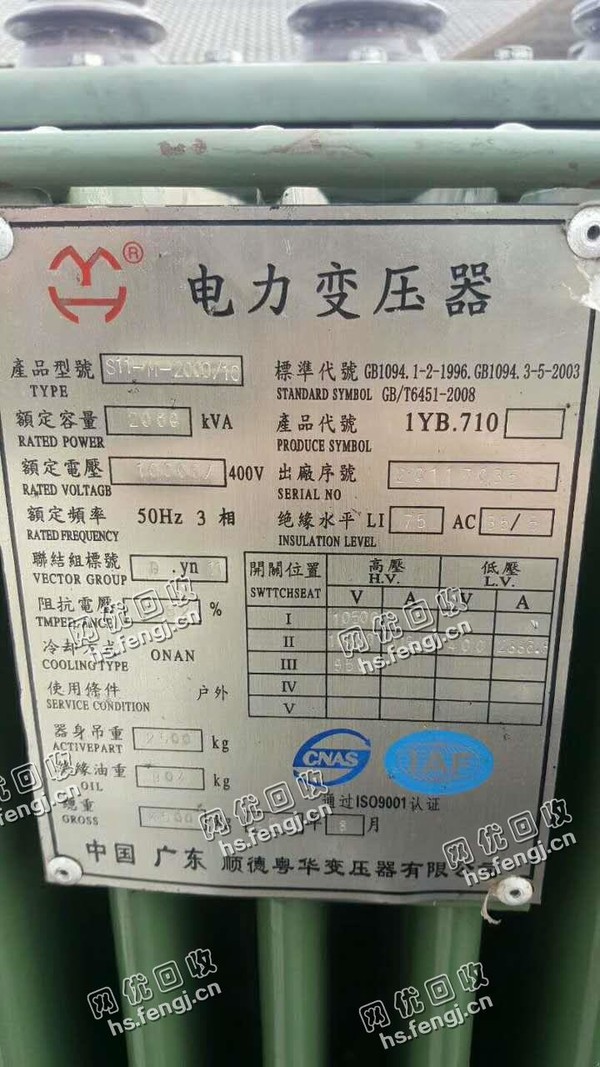 ®
电力变压器
產品型號 S11-M-2000/10
TYPE
標準代號 GB1094.1-2-1996.GB1094.3-5-2003
STANDARD SYMBOL GB/T6451-2008
額定容量 kVA
RATED POWER
產品代號 1YB.710
PRODUCE SYMBOL
額定電壓 400V
RATED VOLTAGB
出廠序號
SERIAL NO
額定頻率 50Hz 3 相
RATED FREQUENCY
绝缘水平 LI 75 AC
INSULATION LEVEL
聯結組標號 D.yn 11
VECTOR GROUP
開關位置 高壓 低壓
SWTTCHSEAT H.V. L.V.
V A V A
阻抗電壓 %
TMPEDANCE
I
II 400
III
IV
V
冷却方式 ONAN
COOLINGTYPE
使用條件 户外
SERVICE CONDITION
器身吊重 kg
ACTIVEPART
絕緣油重 kg
OIL
總重
GROSS
CNAS
IAF
通过ISO9001认证
年 8 月
中国 广东 顺德粤华变压器有限公司
网优回收
hs.fengj.cn
网优回收
hs.fengj.cn
网优回收
hs.fengj.cn
网优回收
hs.fengj.cn
网优回收
hs.fengj.cn
网优回收
hs.fengj.cn